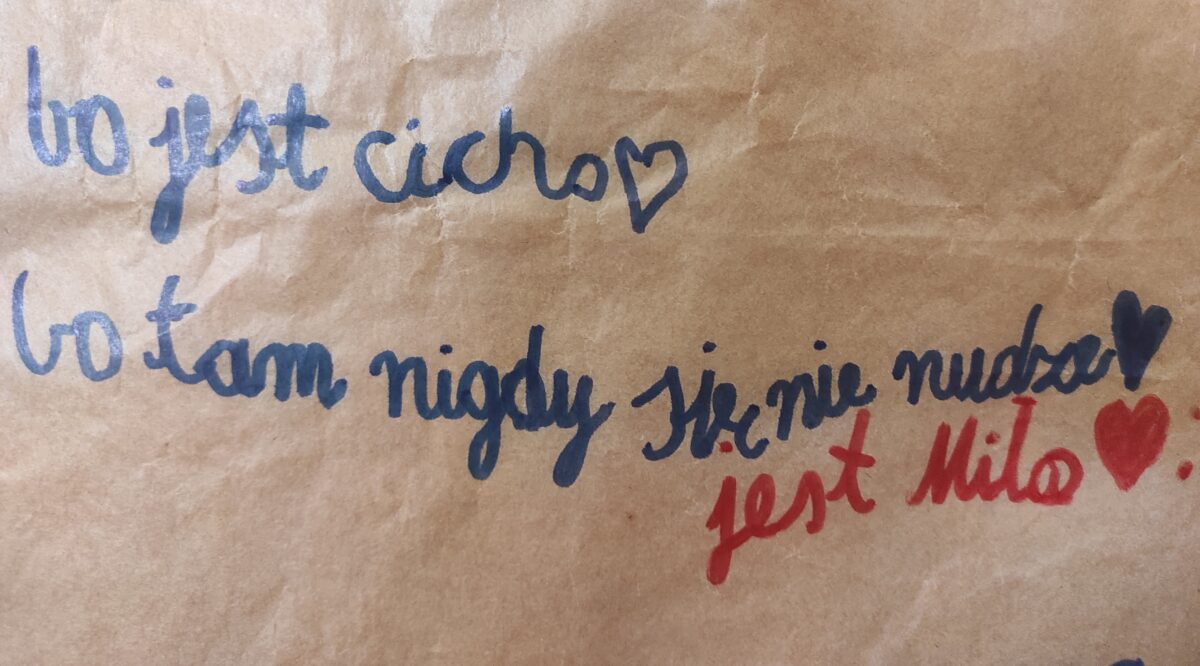 bo jest cicho♡
bo tam nigdy się nie nudzę♥
jest Miło♥: